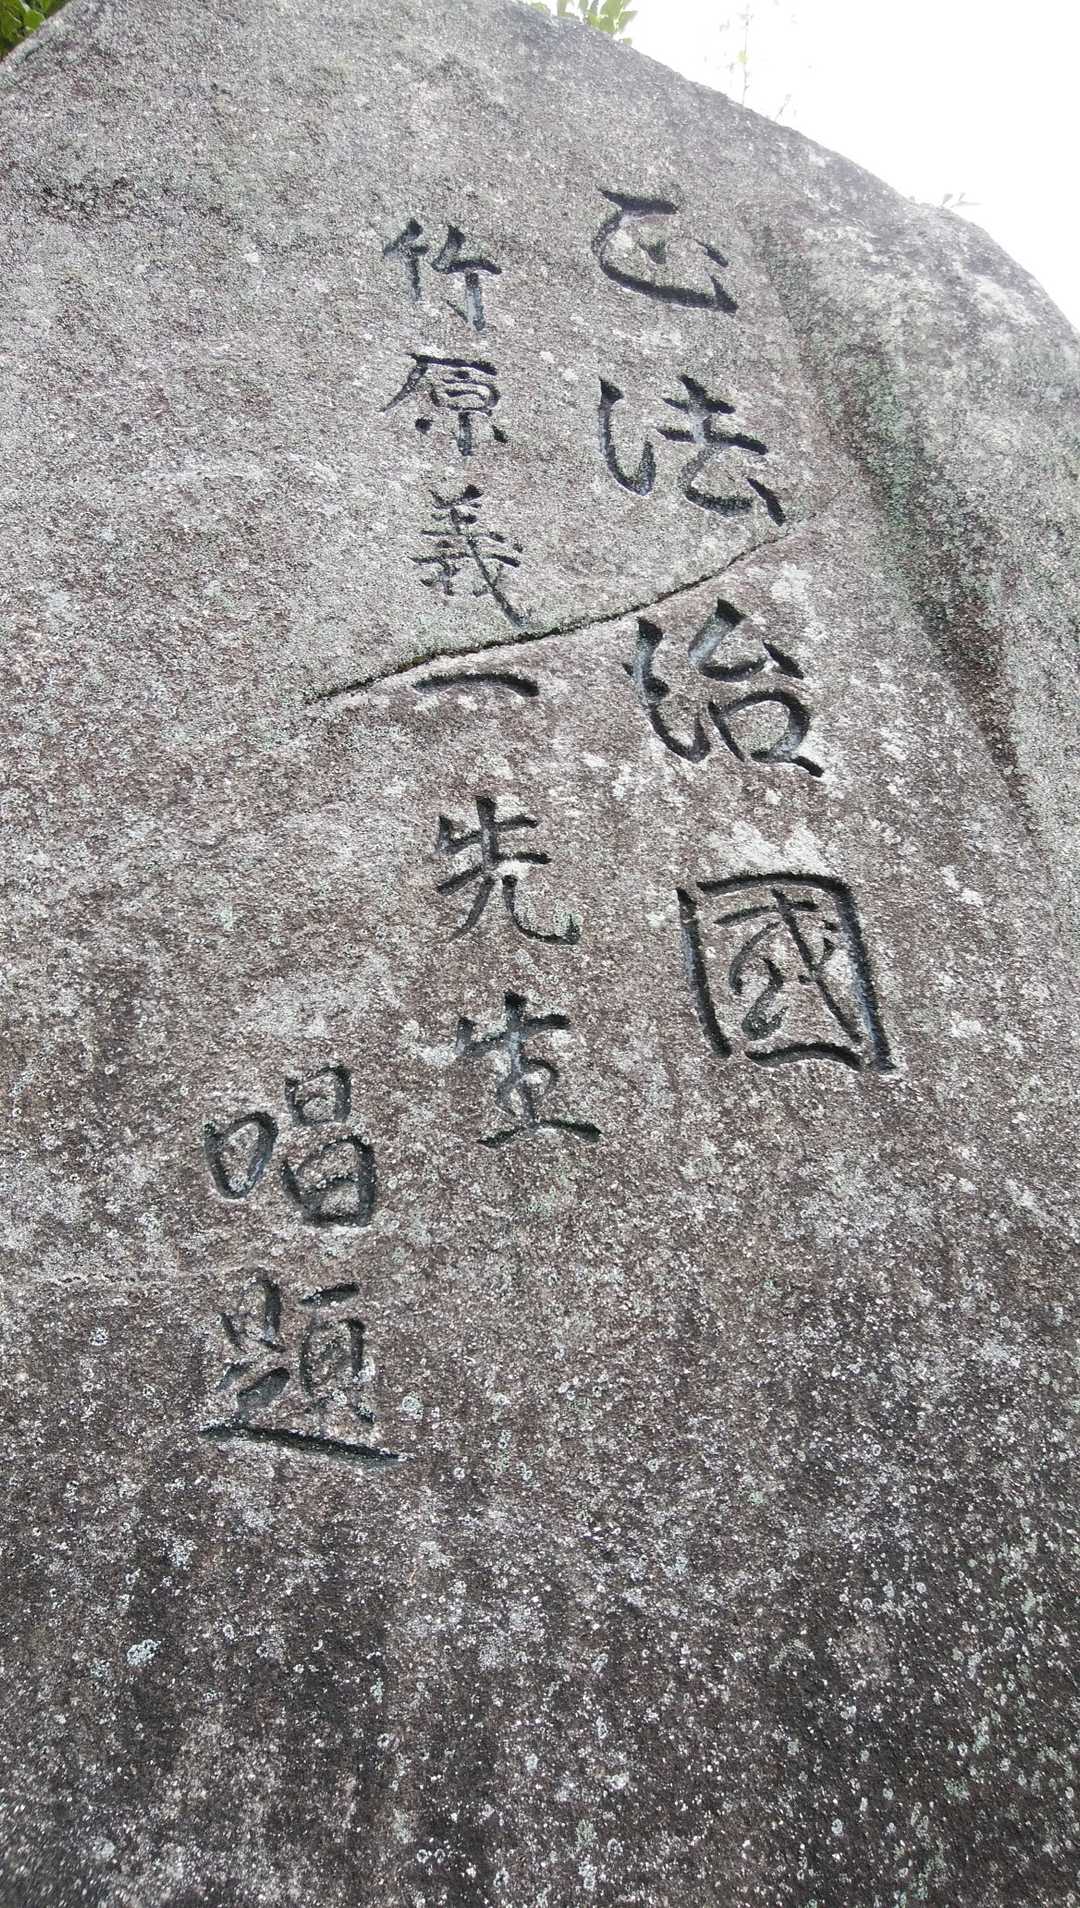 正法治國
竹原義一先生
唱題